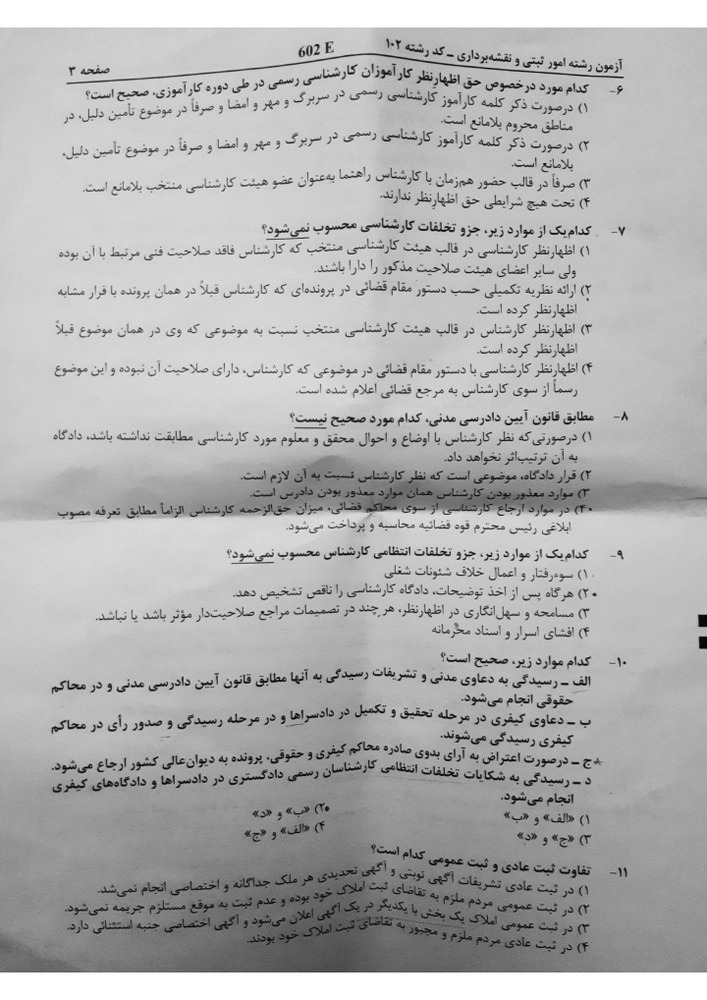 آزمون رشته امور ثبتی و نقشه‌برداری ــ کد رشته ۱۰۲
602 E
صفحه ۳
۶- کدام مورد درخصوص حق اظهارنظر کارآموزان کارشناسی رسمی در طی دوره کارآموزی، صحیح است؟
۱) درصورت ذکر کلمه کارآموز کارشناسی رسمی در سربرگ و مهر و امضا و صرفاً در موضوع تأمین دلیل، در
مناطق محروم بلامانع است.
۲) درصورت ذکر کلمه کارآموز کارشناسی رسمی در سربرگ و مهر و امضا و صرفاً در موضوع تأمین دلیل،
بلامانع است.
۳) صرفاً در قالب حضور هم‌زمان با کارشناس راهنما به‌عنوان عضو هیئت کارشناسی منتخب بلامانع است.
۴) تحت هیچ شرایطی حق اظهارنظر ندارند.
۷- کدام‌یک از موارد زیر، جزو تخلفات کارشناسی محسوب نمی‌شود؟
۱) اظهارنظر کارشناسی در قالب هیئت کارشناسی منتخب که کارشناس فاقد صلاحیت فنی مرتبط با آن بوده
ولی سایر اعضای هیئت صلاحیت مذکور را دارا باشند.
۲) ارائه نظریه تکمیلی حسب دستور مقام قضائی در پرونده‌ای که کارشناس قبلاً در همان پرونده با قرار مشابه
اظهارنظر کرده است.
۳) اظهارنظر کارشناس در قالب هیئت کارشناسی منتخب نسبت به موضوعی که وی در همان موضوع قبلاً
اظهارنظر کرده است.
۴) اظهارنظر کارشناسی با دستور مقام قضائی در موضوعی که کارشناس، دارای صلاحیت آن نبوده و این موضوع
رسماً از سوی کارشناس به مرجع قضائی اعلام شده است.
۸- مطابق قانون آیین دادرسی مدنی، کدام مورد صحیح نیست؟
۱) درصورتی‌که نظر کارشناس با اوضاع و احوال محقق و معلوم مورد کارشناسی مطابقت نداشته باشد، دادگاه
به آن ترتیب‌اثر نخواهد داد.
۲) قرار دادگاه، موضوعی است که نظر کارشناس نسبت به آن لازم است.
۳) موارد معذور بودن کارشناس همان موارد معذور بودن دادرس است.
۴) در موارد ارجاع کارشناسی از سوی محاکم قضائی، میزان حق‌الزحمه کارشناس الزاماً مطابق تعرفه مصوب
ابلاغی رئیس محترم قوه قضائیه محاسبه و پرداخت می‌شود.
۹- کدام‌یک از موارد زیر، جزو تخلفات انتظامی کارشناس محسوب نمی‌شود؟
۱) سوءرفتار و اعمال خلاف شئونات شغلی
۲) هرگاه پس از اخذ توضیحات، دادگاه کارشناسی را ناقص تشخیص دهد.
۳) مسامحه و سهل‌انگاری در اظهارنظر، هر چند در تصمیمات مراجع صلاحیت‌دار مؤثر باشد یا نباشد.
۴) افشای اسرار و اسناد محرمانه
۱۰- کدام موارد زیر، صحیح است؟
الف ــ رسیدگی به دعاوی مدنی و تشریفات رسیدگی به آنها مطابق قانون آیین دادرسی مدنی و در محاکم
حقوقی انجام می‌شود.
ب ــ دعاوی کیفری در مرحله تحقیق و تکمیل در دادسراها و در مرحله رسیدگی و صدور رأی در محاکم
کیفری رسیدگی می‌شوند.
ج ــ درصورت اعتراض به آرای بدوی صادره محاکم کیفری و حقوقی، پرونده به دیوان‌عالی کشور ارجاع می‌شود.
د ــ رسیدگی به شکایات تخلفات انتظامی کارشناسان رسمی دادگستری در دادسراها و دادگاه‌های کیفری
انجام می‌شود.
۱) «الف» و «ب»
۲) «ب» و «د»
۳) «ج» و «د»
۴) «الف» و «ج»
۱۱- تفاوت ثبت عادی و ثبت عمومی کدام است؟
۱) در ثبت عادی تشریفات آگهی نوبتی و آگهی تحدیدی هر ملک جداگانه و اختصاصی انجام نمی‌شد.
۲) در ثبت عمومی مردم ملزم به تقاضای ثبت املاک خود بوده و عدم ثبت به موقع مستلزم جریمه نمی‌شود.
۳) در ثبت عمومی املاک یک بخش با یکدیگر در یک آگهی اعلان می‌شود و آگهی اختصاصی جنبه استثنائی دارد.
۴) در ثبت عادی مردم ملزم و مجبور به تقاضای ثبت املاک خود بودند.